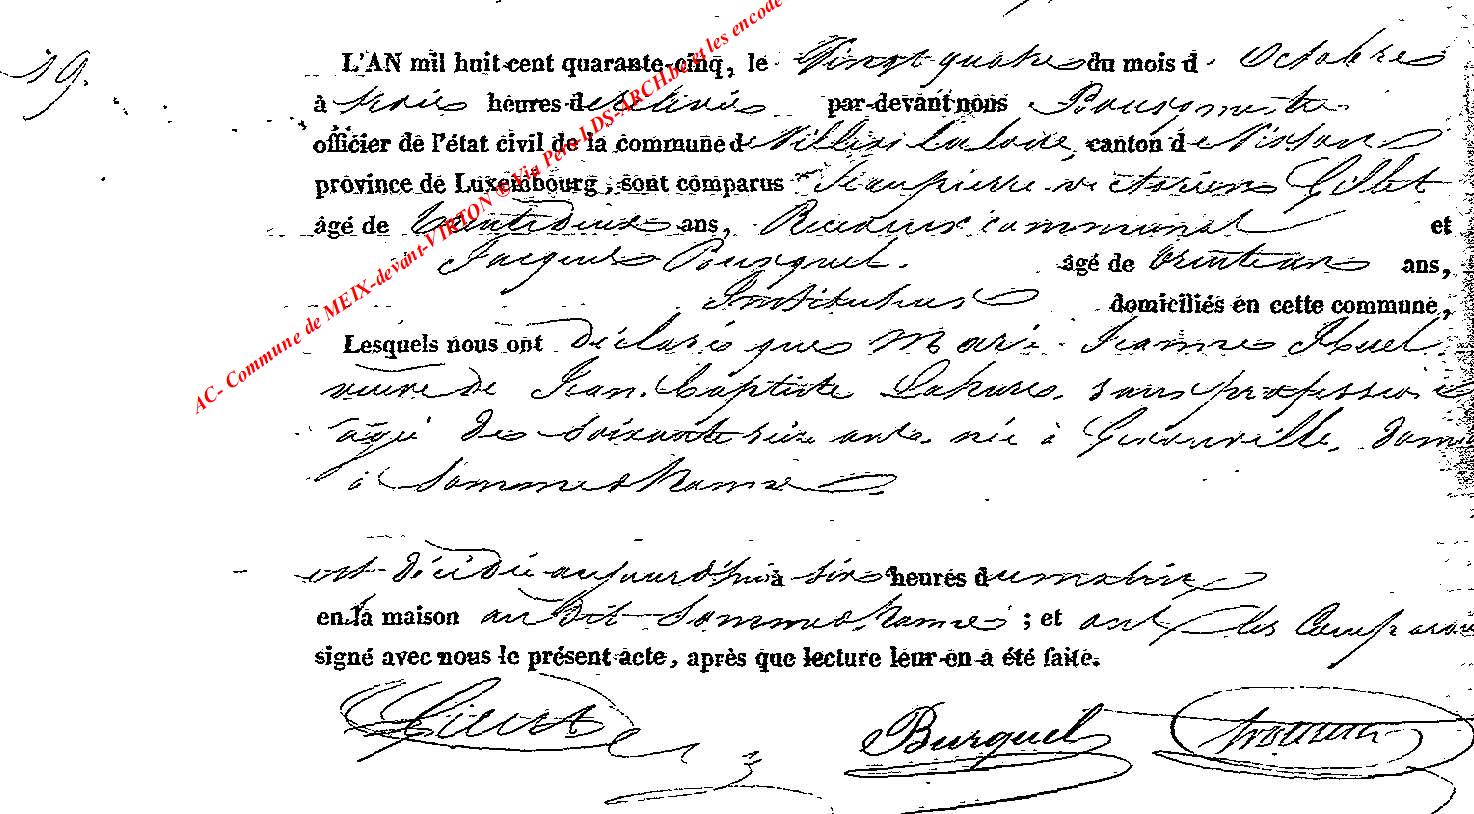 19.
L'AN mil huit cent quarante-cinq, le Vingt quatre du mois d'Octobre
à trois heures de relevée par-devant nous Bourgmestre
officier de l'état civil de la commune de Villers la loue, canton de Virton
province de Luxembourg, sont comparus Jean pierre victorien Gillet
âgé de trente deux ans, Receveur communal et
Jacques Burquel. âgé de trente ans,
Instituteur domiciliés en cette commune,
Lesquels nous ont déclaré que Marie Jeanne
veuve de Jean Baptiste Lahure, sans profession
agée de soixante seize ans, née à Gerouville,
à Sommethonne
est décédée aujourd'hui à six heures du matin
en la maison au dit Sommethonne ; et ont les comparans
signé avec nous le présent acte, après que lecture leur en a été faite.
Burquel
AC- Commune de MEIX-devant-VIRTON © Via Pers-LDS-ARCH.be et les encode